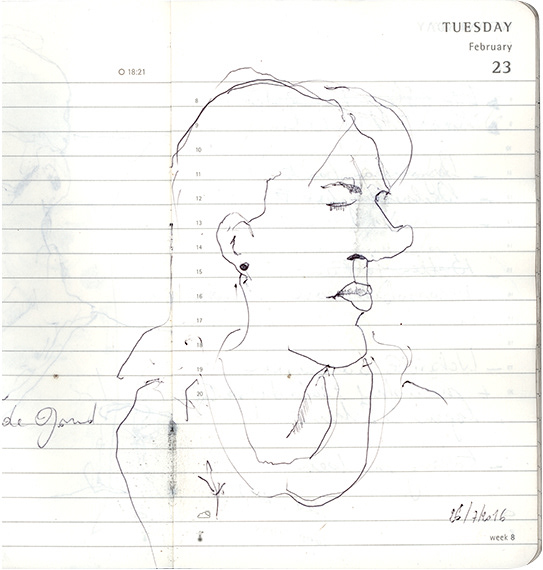 TUESDAY
February
23
18:21
8
9
10
11
12
13
14
15
16
17
18
19
20
de Gand
26/7/2016
week 8